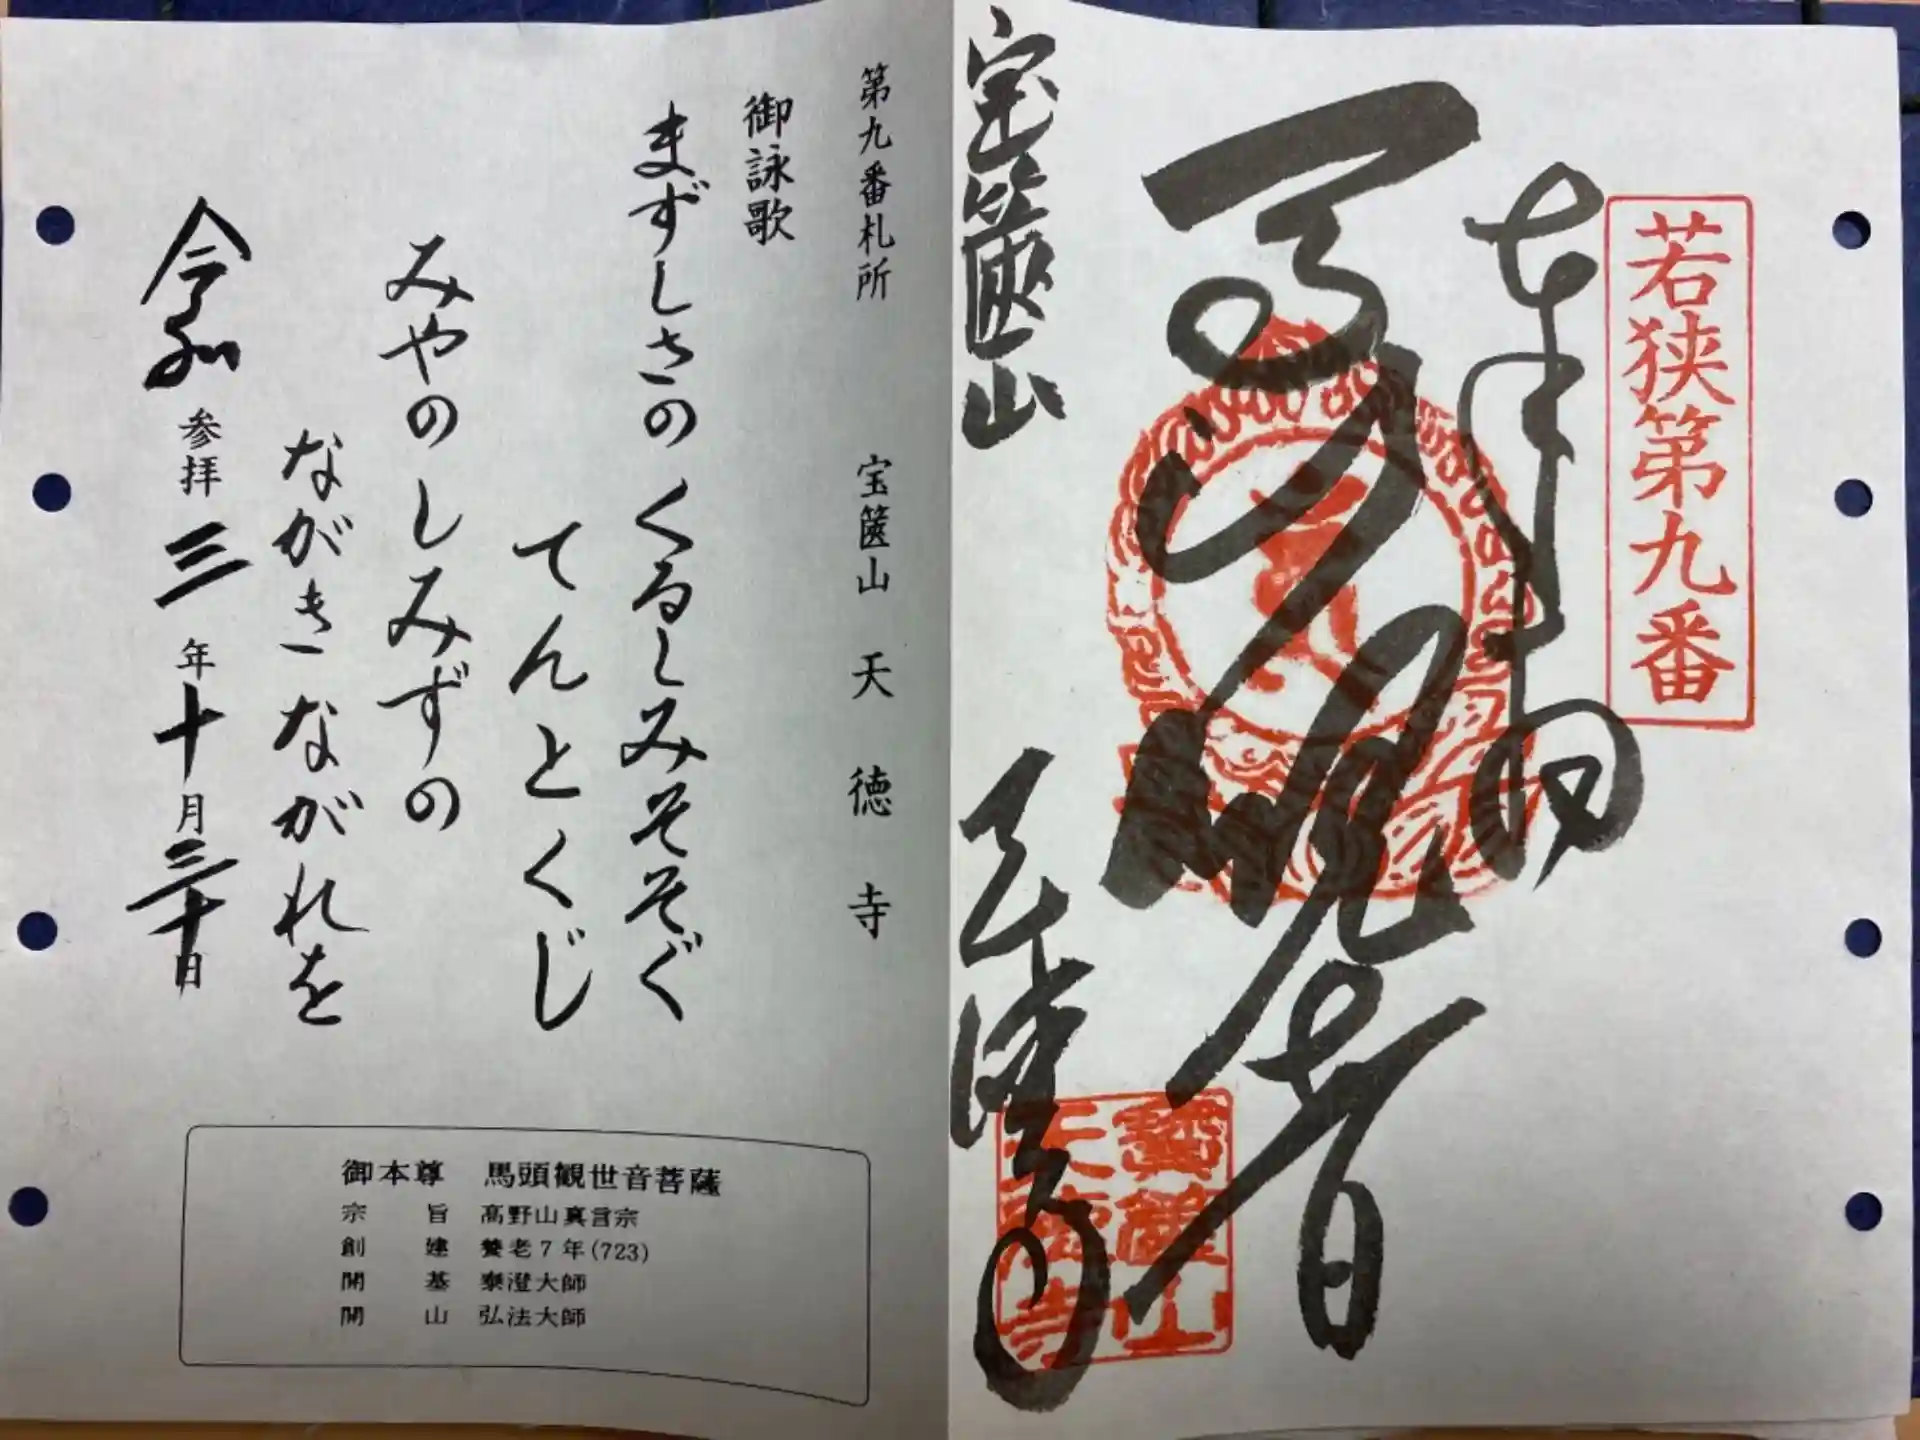 若狭第九番
奉拝
馬頭観音
宝篋山
天徳寺
寶篋山
天徳寺
第九番札所 宝篋山 天徳寺
御詠歌
まずしさの くるしみそそぐ
てんとくじ
みやのしみずの
ながきながれを
令和 参拝 三年 十月 三十日
御本尊 馬頭観世音菩薩
宗旨 高野山真言宗
創建 養老7年(723)
開基 泰澄大師
開山 弘法大師